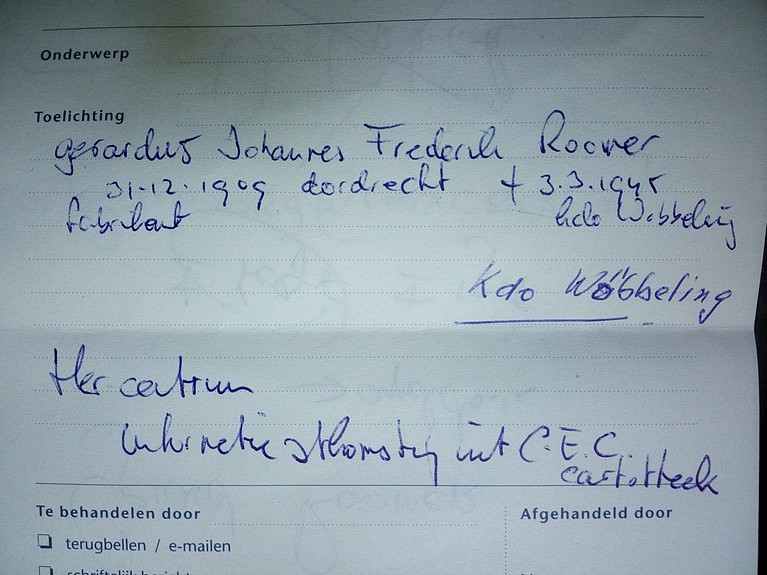 Onderwerp
Toelichting
Gerardus Johannes Frederik Roomer
31-12-1909 dordrecht † 3.3.1945
fabrikant kdo Wobbeling
Kdo Wöbbeling
Her centrum
informatie afkomstig uit C.E.C.
cartotheek
Te behandelen door Afgehandeld door
terugbellen / e-mailen